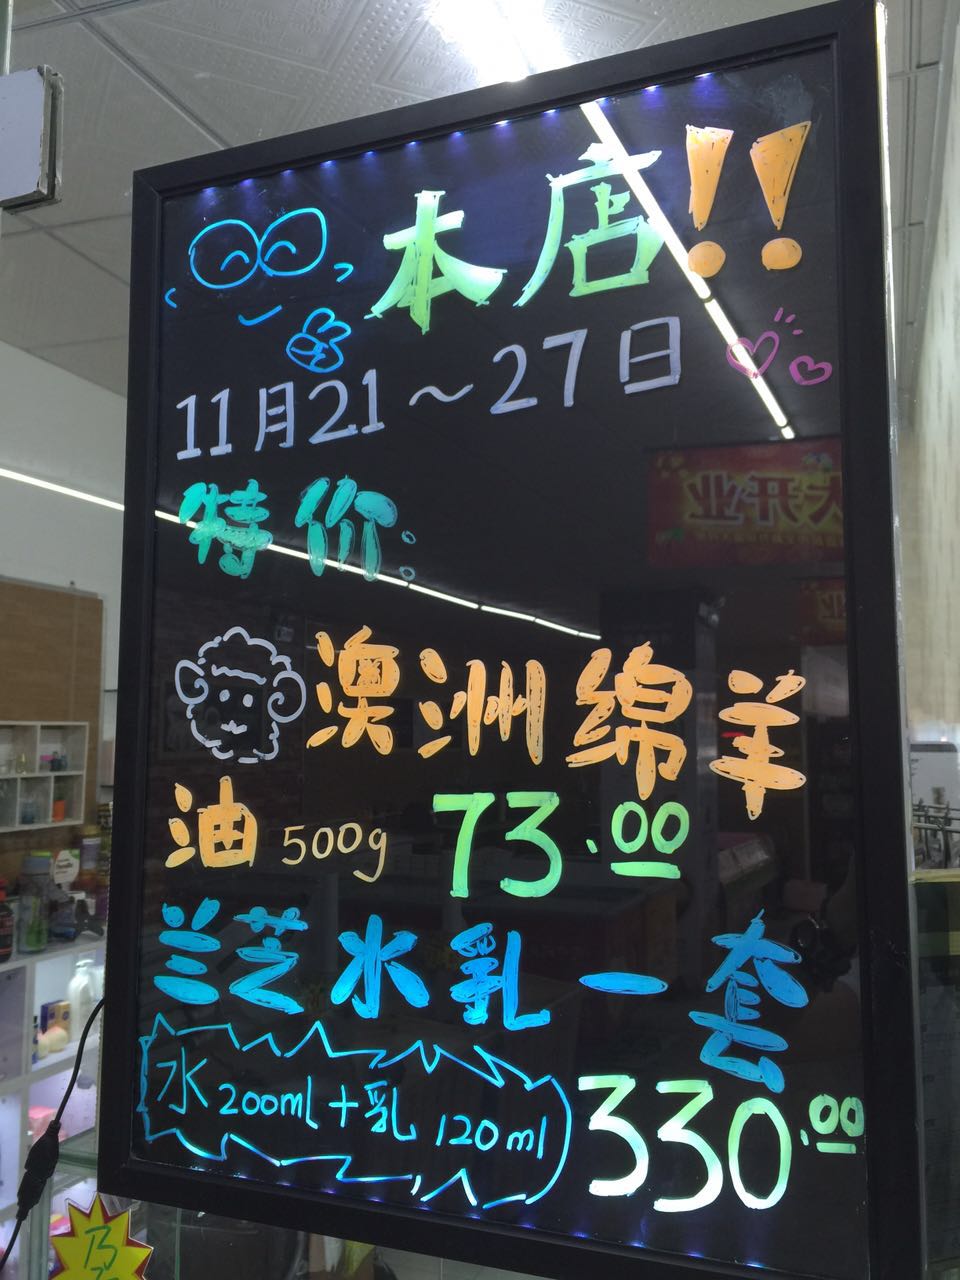 本店!!
11月21~27日
特价:
澳洲绵羊
油 500g 73.00
兰芝水乳一套
水200ml+乳120ml 330.00
大开业